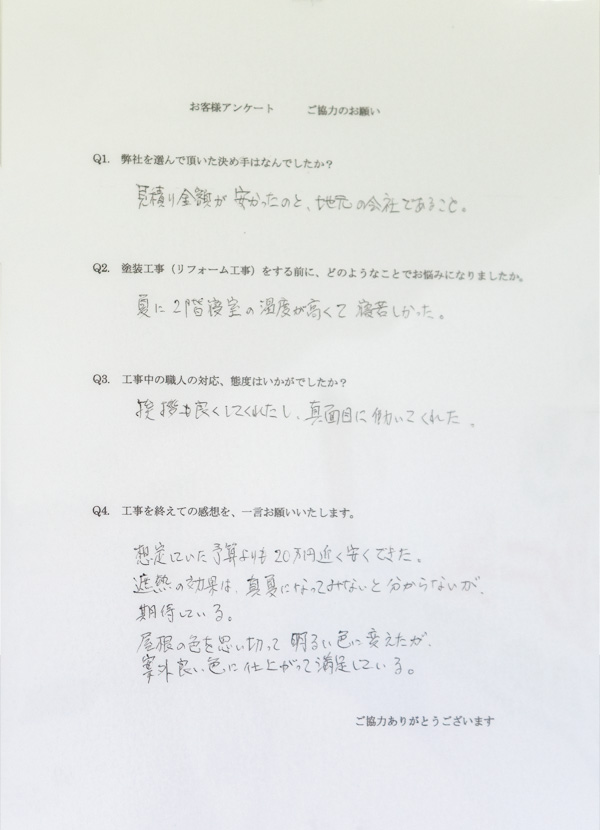 お客様アンケート　ご協力のお願い
Q1. 弊社を選んで頂いた決め手はなんでしたか？
見積り金額が安かったのと、地元の会社であること。
Q2. 塗装工事（リフォーム工事）をする前に、どのようなことでお悩みになりましたか。
夏に2階寝室の温度が高くて寝苦しかった。
Q3. 工事中の職人の対応、態度はいかがでしたか？
挨拶も良くしてくれたし、真面目に働いてくれた。
Q4. 工事を終えての感想を、一言お願いいたします。
想定していた予算よりも20万円近く安くできた。
遮熱の効果は、真夏になってみないと分からないが、
期待している。
屋根の色を思い切って明るい色に変えたが、
案外良い色に仕上がって満足している。
ご協力ありがとうございます